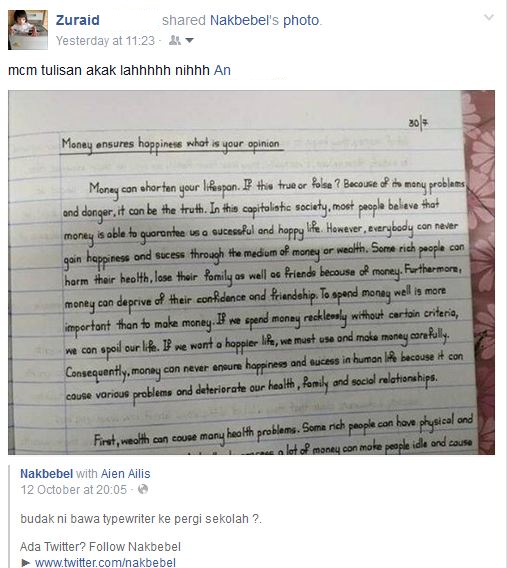 Zuraid shared Nakbebel's photo.
Yesterday at 11:23 ·
mcm tulisan akak lahhhhh nihhh An
30/7
Money ensures happiness what is your opinion
Money can shorten your lifespan. If this true or false? Because of its many problems
and danger, it can be the truth. In this capitalistic society, most people believe that
money is able to guarantee us a sucessful and happy life. However, everybody can never
gain happiness and sucess through the medium of money or wealth. Some rich people can
harm their health, lose their family as well as friends because of money. Furthermore,
money can deprive of their confidence and friendship. To spend money well is more
important than to make money. If we spend money recklessly without certain criteria,
we can spoil our life. If we want a happier life, we must use and make money carefully.
Consequently, money can never ensure happiness and sucess in human life because it can
cause various problems and deteriorate our health, family and social relationships.
First, wealth can cause many health problems. Some rich people can have physical and
a lot of money can make people idle and cause
Nakbebel with Aien Ailis
12 October at 20:05 ·
budak ni bawa typewriter ke pergi sekolah ?.
Ada Twitter? Follow Nakbebel
► www.twitter.com/nakbebel